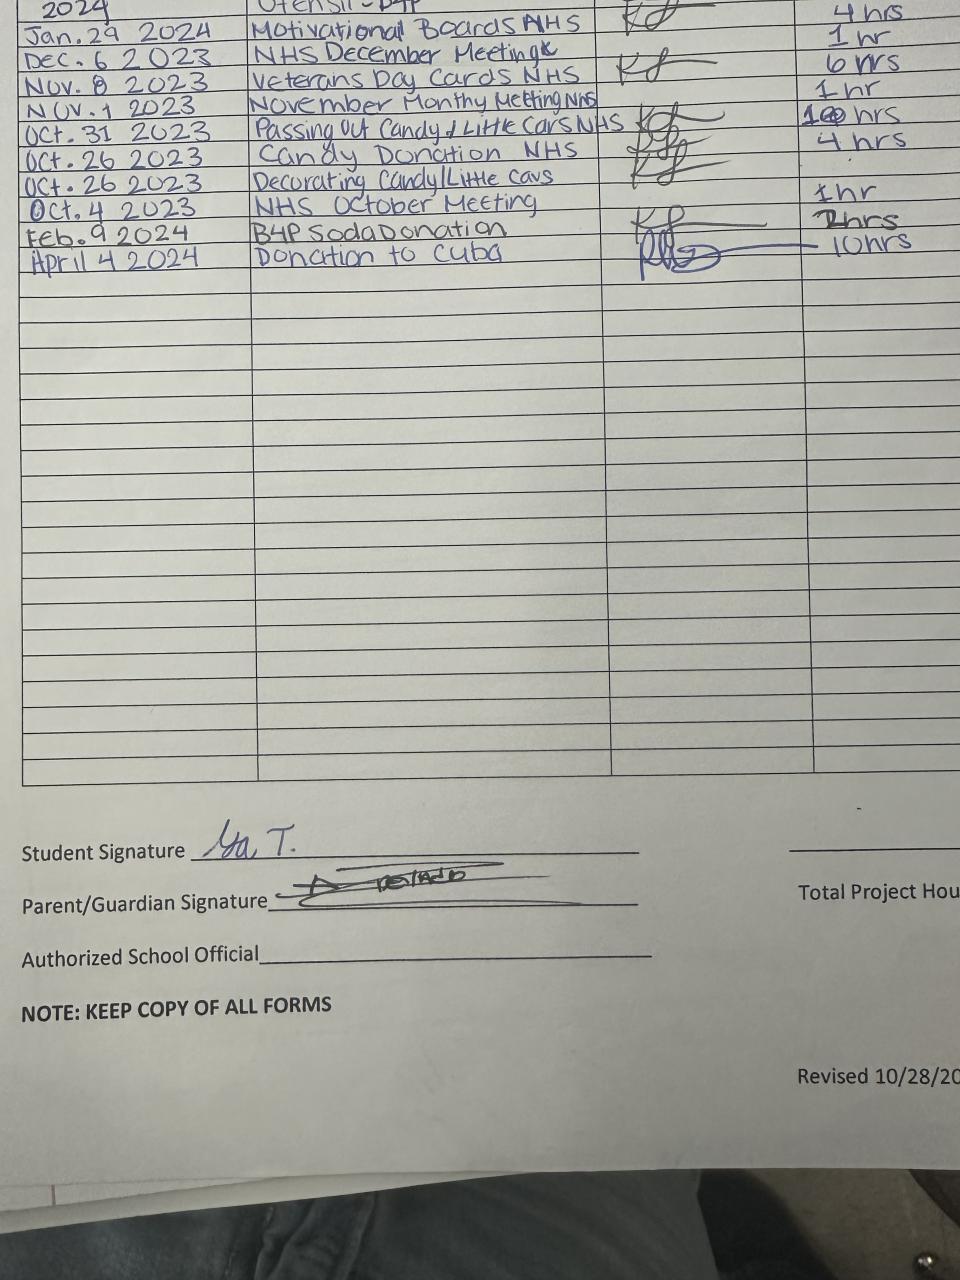 2024 Utensil - B4P
Jan. 29 2024 Motivational Boards NHS 4 hrs
Dec. 6 2023 NHS December Meeting 1 hr
Nov. 8 2023 Veterans Day Cards NHS 6 hrs
Nov. 1 2023 November Monthy Meeting NHS 1 hr
Oct. 31 2023 Passing Out Candy & Little Cars NHS hrs
Oct. 26 2023 Candy Donation NHS 4 hrs
Oct. 26 2023 Decorating Candy/Little Cars
Oct. 4 2023 NHS October Meeting 1hr
Feb. 9 2024 B4P Soda Donation 2hrs
April 4 2024 Donation to Cuba 10hrs
Student Signature
Parent/Guardian Signature
Total Project Hou
Authorized School Official
NOTE: KEEP COPY OF ALL FORMS
Revised 10/28/20